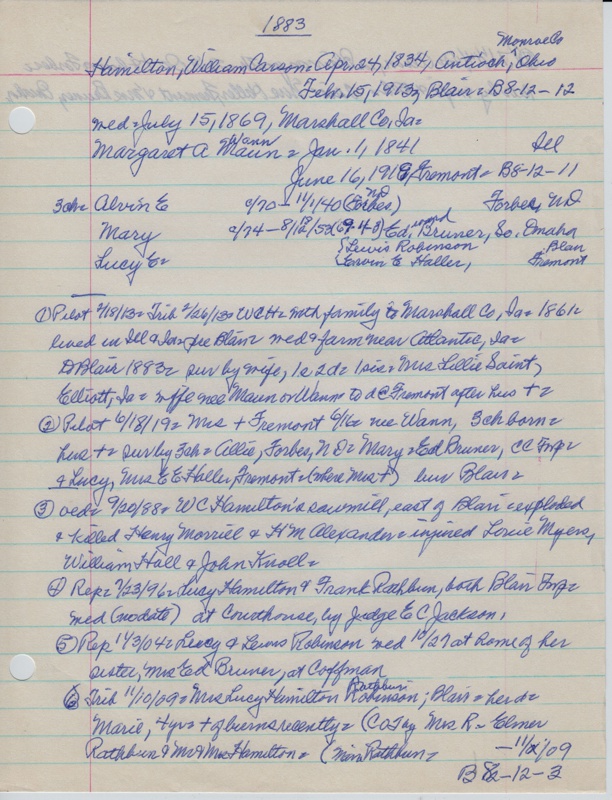 1883
Monroe Co
Hamilton, William Carson = Apr. 24, 1834, Antioch, Ohio
Feb. 15, 1913, Blair = B8-12-12
med = July 15, 1869, Marshall Co, Ia =
Wann
Margaret A Maun = Jan. 1, 1841 Ill
June 16, 1919, Fremont = B8-12-11
3ch = Alvin E c/70 - 11/1/40 (Forbes) ND Forbes, ND
Mary c/74 - 8/12/52 Ed, Bruner, So. Omaha
Lucy E = {Lewis Robinson Blair
{Ervin E Haller, Fremont
① Pilot 2/18/13 = Trib 2/26/13 = WCH = with family to Marshall Co, Ia = 1861 =
lived in Ill & Ia = pre Blair = med & farm near Atlantic, Ia =
D Blair 1883 = sur by wife, 1s 2d = 1 sis = Mrs Lillie Saint,
Elliott, Ia = wife nee Maun or Wann to d @ Fremont after hus + =
② Pilot 6/18/19 = Mrs + Fremont 6/16 = nee Wann, 3ch born =
hus + = sur by 3ch = Allie, Forbes, ND = Mary = Ed Bruner, CC Twp =
& Lucy, Mrs E E Haller, Fremont = (where Mrs +) bur Blair =
③ 9/20/88 = W C Hamilton's sawmill, east of Blair = exploded
& killed Henry Morrill & H M Alexander = injured Louie Myers,
William Hall & John Knoll =
④ Rep = 7/23/96 = Lucy Hamilton & Frank Rathbun, both Blair Twp =
med (no date) at Courthouse, by Judge E C Jackson,
⑤ Rep 11/3/04 = Lucy & Lewis Robinson med 10/27 at home of her
sister, Mrs Ed Bruner, at Coffman
Rathbun
⑥ Trib 11/10/09 = Mrs Lucy Hamilton Robinson; Blair = her d =
Marie, 4yr = + of burns recently = (CoT by Mrs R = Elmer
Rathbun & Mr & Mrs Hamilton = ( Rathbun = - 11/ /09
B 8-12-3